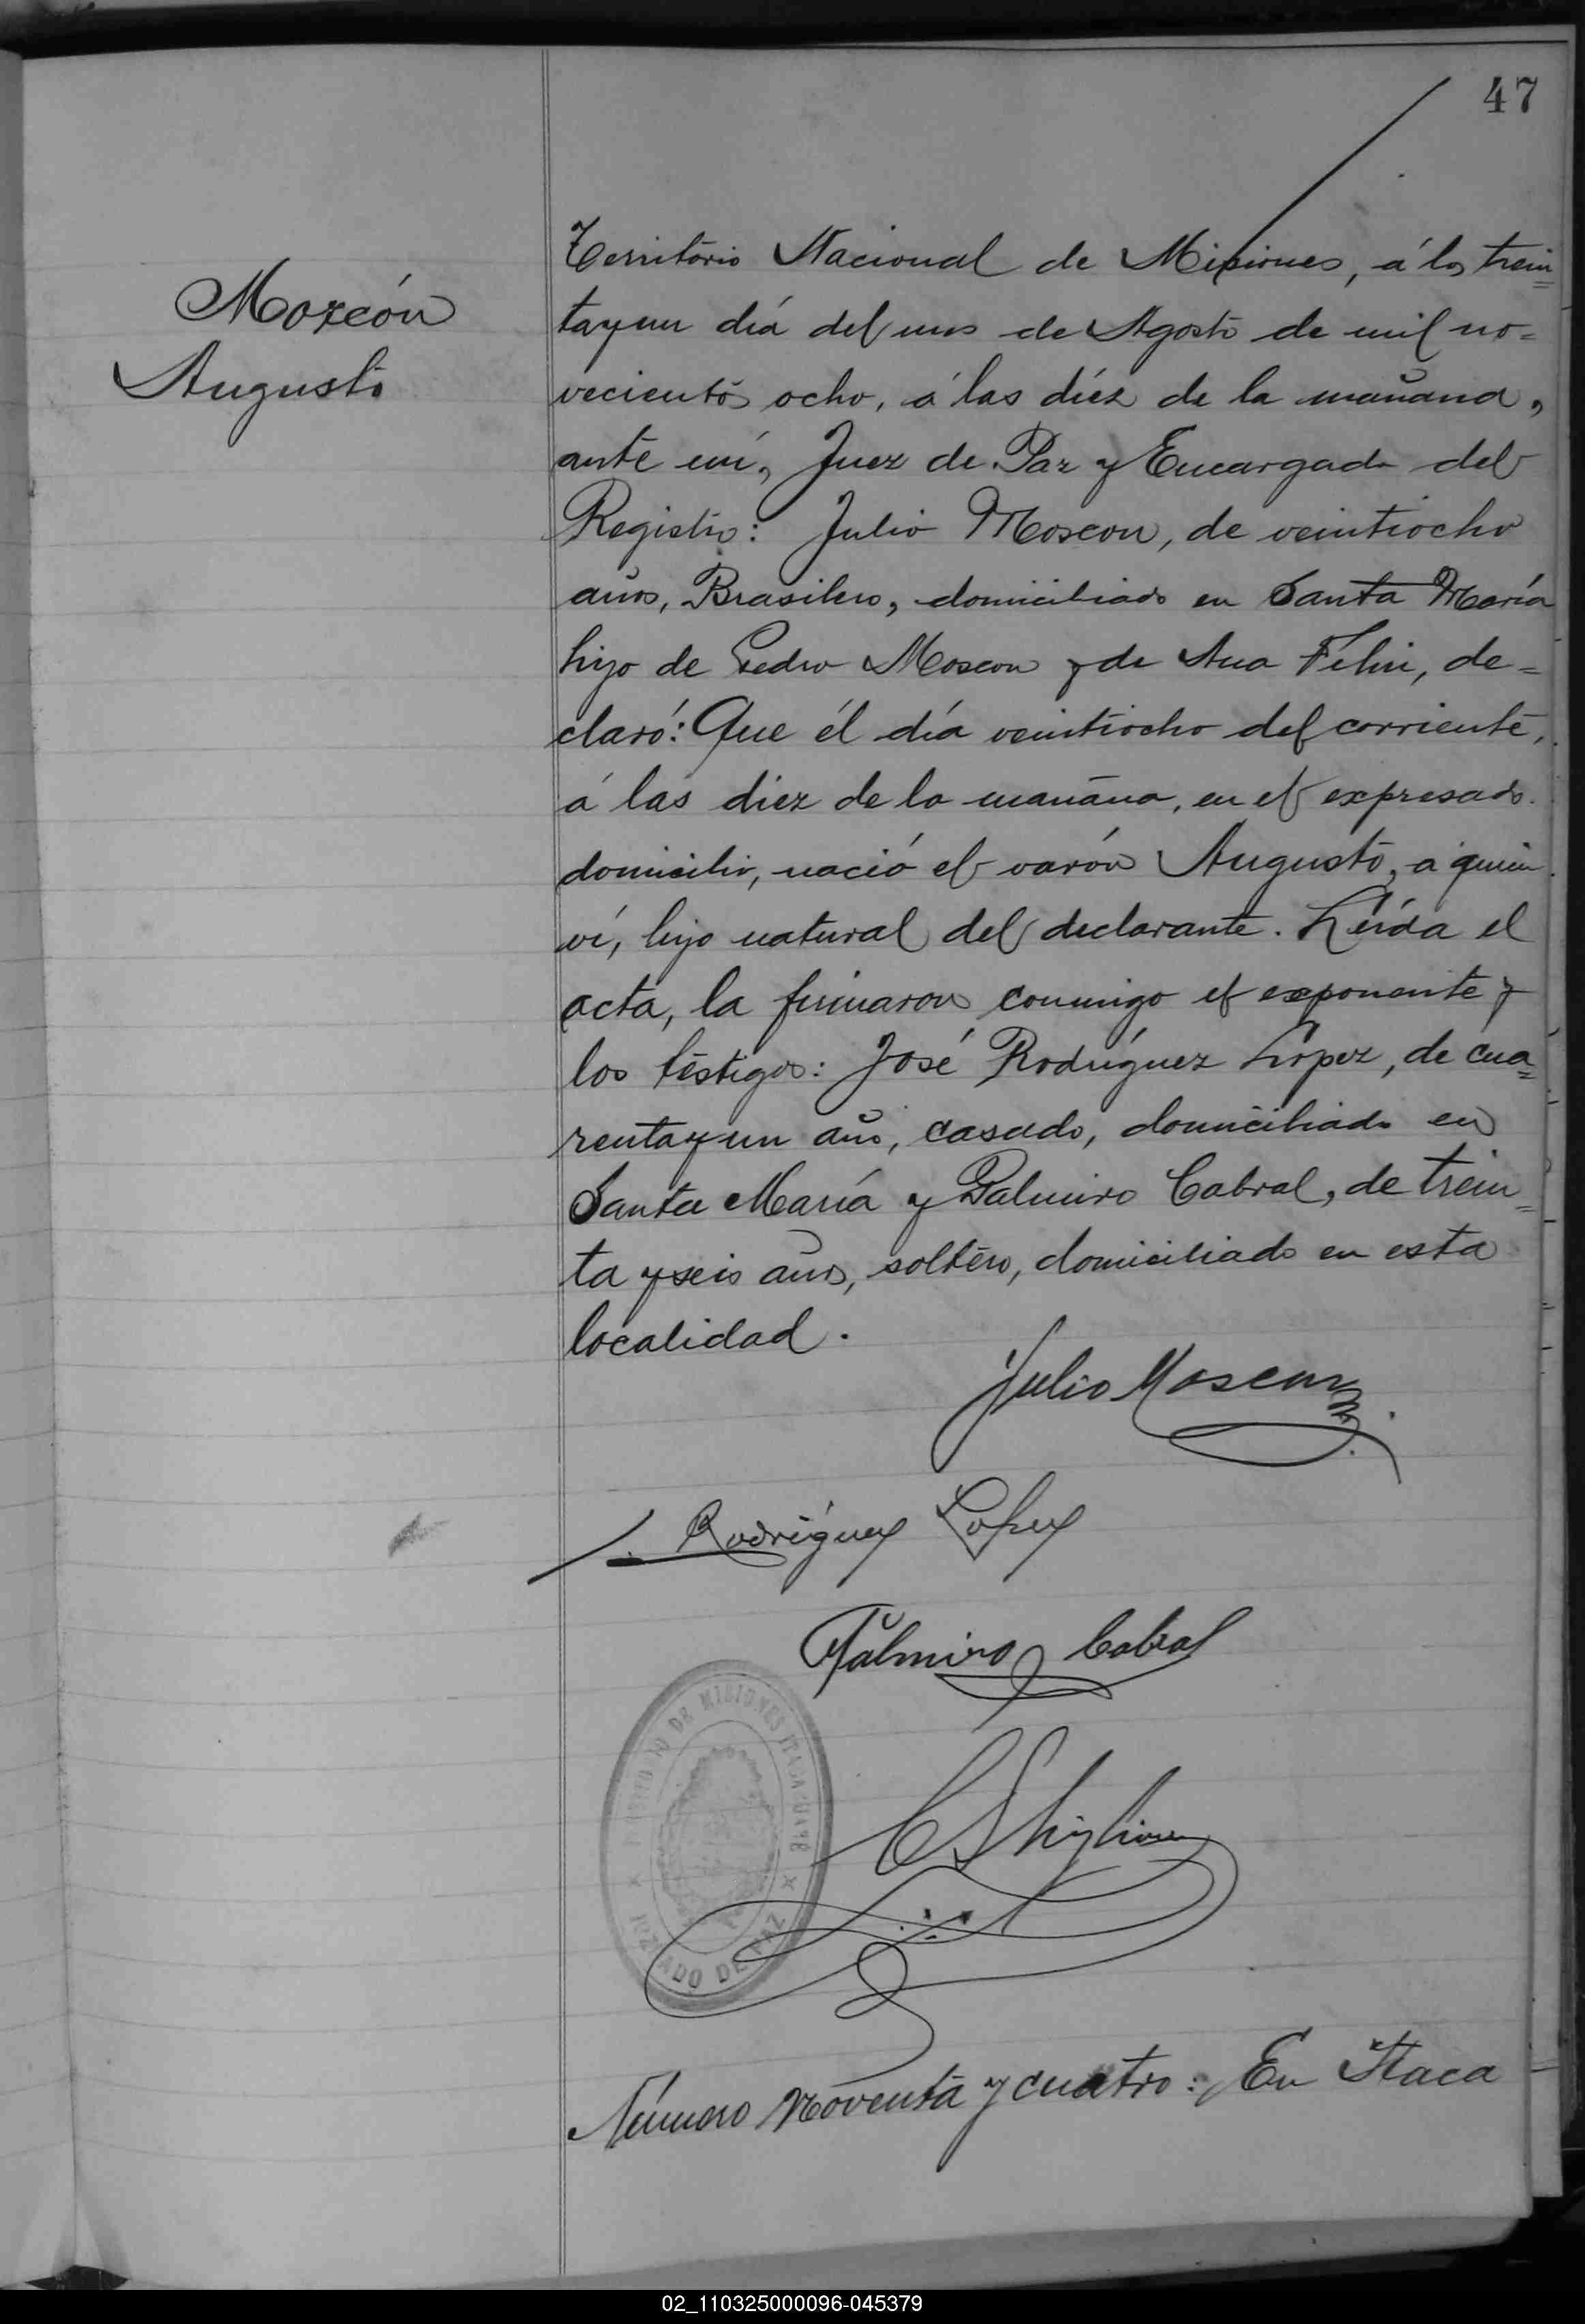 47
Moxcón
Augusto
Territorio Nacional de Misiones, á los trein=
tayun día del mes de Agosto de mil no=
vecientos ocho, á las diéz de la mañana,
ante mí, Juez de Paz y Encargado del
Registro: Julio Moscon, de veintiocho
años, Brasilero, domiciliado en Santa María
hijo de Pedro Moscon y de Ana Felin, de=
claró: Que él día veintiocho del corriente,
á las diez de la mañana, en el expresado
domicilio, nació el varón Augusto, a quien
ví, hijo natural del declarante. Leída el
acta, la firmaron conmigo el exponente y
los testigos: José Rodríguez López, de cua=
rentayun año, casado, domiciliado en
Santa María y Palmiro Cabral, de trein=
ta y seis años, soltero, domiciliado en esta
localidad.
Julio Moscon
J. Rodríguez Lopez
Palmiro Cabral
TERRITORIO DE MISIONES ITACARUARÉ
JUZGADO DE PAZ
Número Noventa y cuatro: En Itaca
02_110325000096-045379